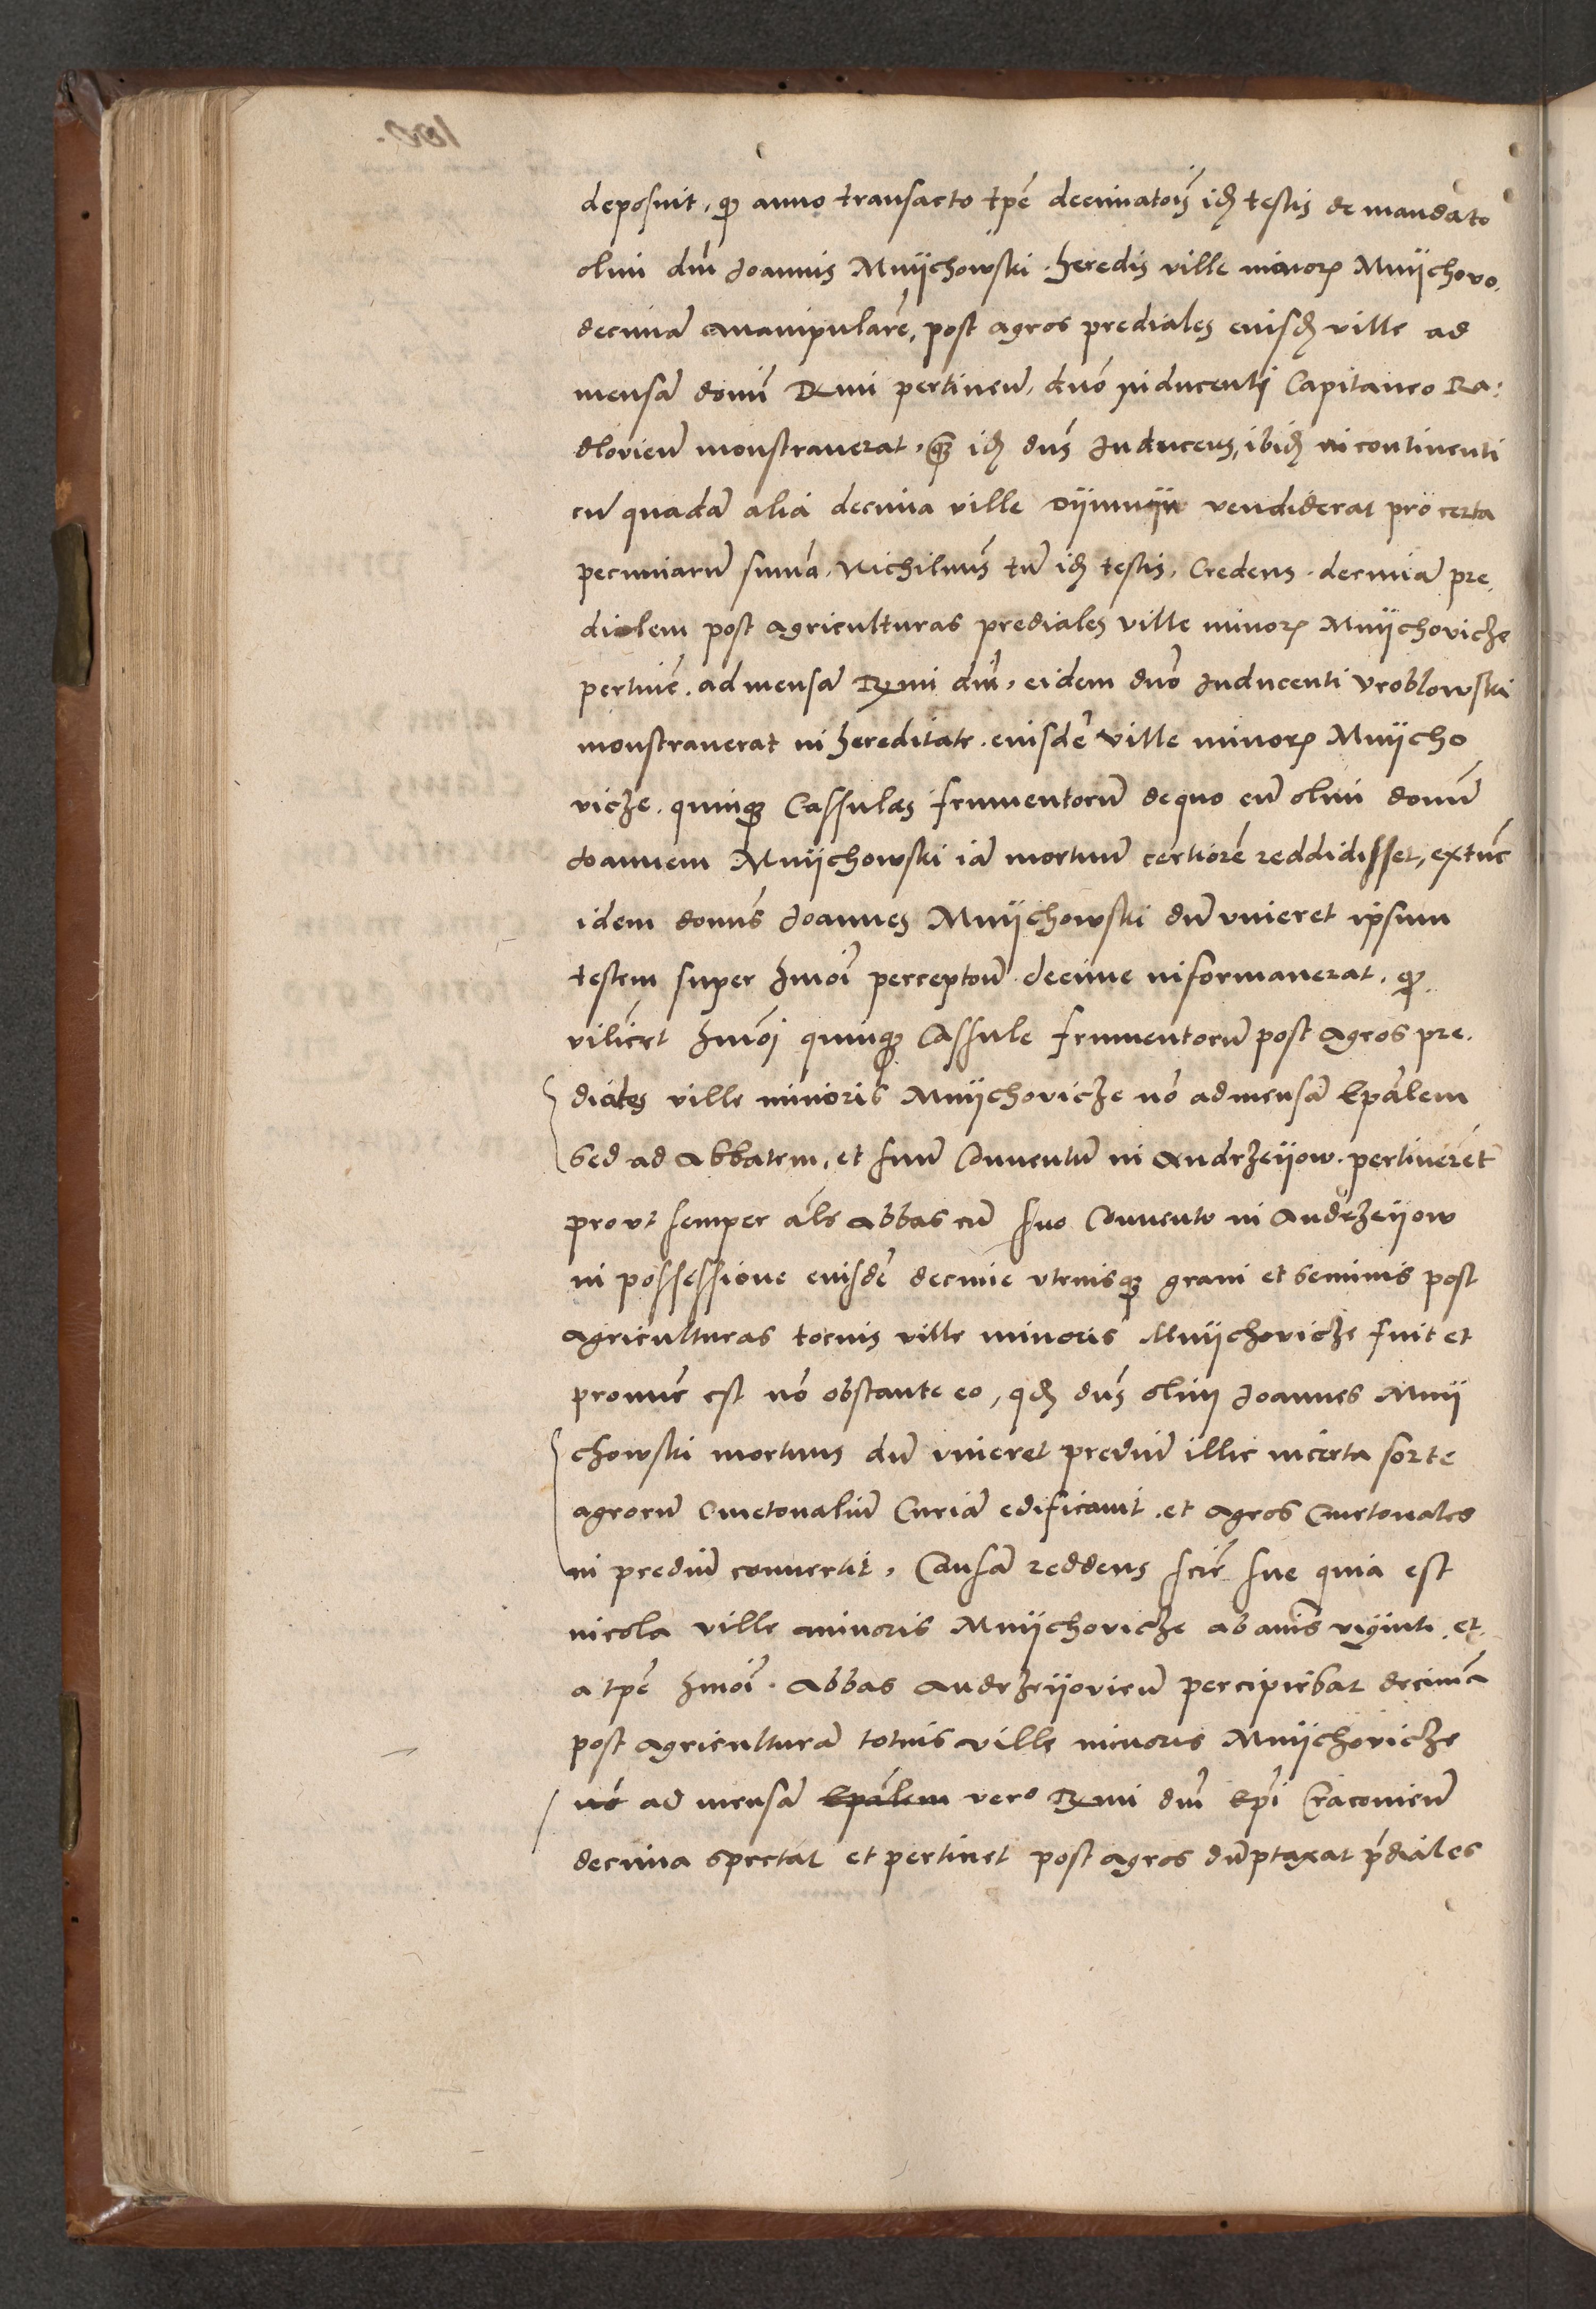 deposuit, qȝ anno transacto tp̄e decimatoīs idꝫ testis de mandato
olim dm̄ Joannis Mnijchowski heredis ville minorꝫ Mnijchovo.
decimā manipularē, post agros prediales eiusdꝫ ville ad
mensā domī Rmi pertineñ, dnō inducenti Capitaneo Ra:
dlovieñ monstraverat, quā idꝫ dn̄s Inducens, ibidꝫ in continenti
cū quadā alia decima ville vendiderat pro certa
pecuniarū suma, Nichilnus̄ tn̄ idꝫ testis, Credens decimā pre,
dialem post agriculturas prediales ville minorꝫ Mnijchovicze
pertinē, ad mensā Rmi dnī, eidem dnō Inducenti Vroblowski
monstraverat in hereditate eiusdē ville minorꝫ Mnijcho
vicze quinqȝ Cassulas frumentorū de quo cū olim domū
Joannem Mnijchowski iā mortuū certiorē reddidisset, extunc
idem domus̄ Joannes Mnijchowski dū viveret ipsum
testem super hmoī perceptoū decime informaverat, qȝ
vilicet hmōi quinqȝ Cassule frumentorū post agros pre.
diales ville minoris Mnijchovicze nō ad mensā Epālem
sed ad Abbatem, et suū Conventū in Andrzeijow pertinerēt
prout semper als̄ Abbas cū suo Conventu in Andrzeijow
in possessione eiusdē decime utriusqȝ grani et seminis post
agriculturas tocius ville minoris Mnijchovicze fuit et
pronunc est nō obstante eo, qdꝫ dn̄s olim Joannes Mnij
chowski mortuus dū viveret prediū illic incerta sorte
agrorū Cmetonaliū Curiā edificavit et agros Cmetonales
in prediū convertit, Causā reddens scīe sue quia est
incola ville minoris Mnijchovicze ab annis viginti et
a tpē hmoī Abbas Andrzeijovieñ percipiebat decimā
post agriculturā totius ville minoris Mnijchovicze
nō ad mensā Epālem vero Rmi dnī Epī Cracovieñ
decima spectat et pertinet post agros dūptaxat p̄diales